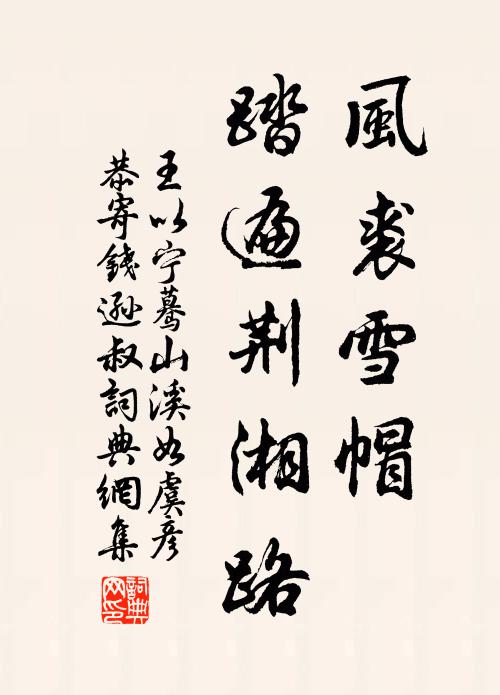 風裘雪帽
踏遍荆湘路
王以宁驀山溪如虞彦
恭寄錢遜叔詞典網集
詞典网印